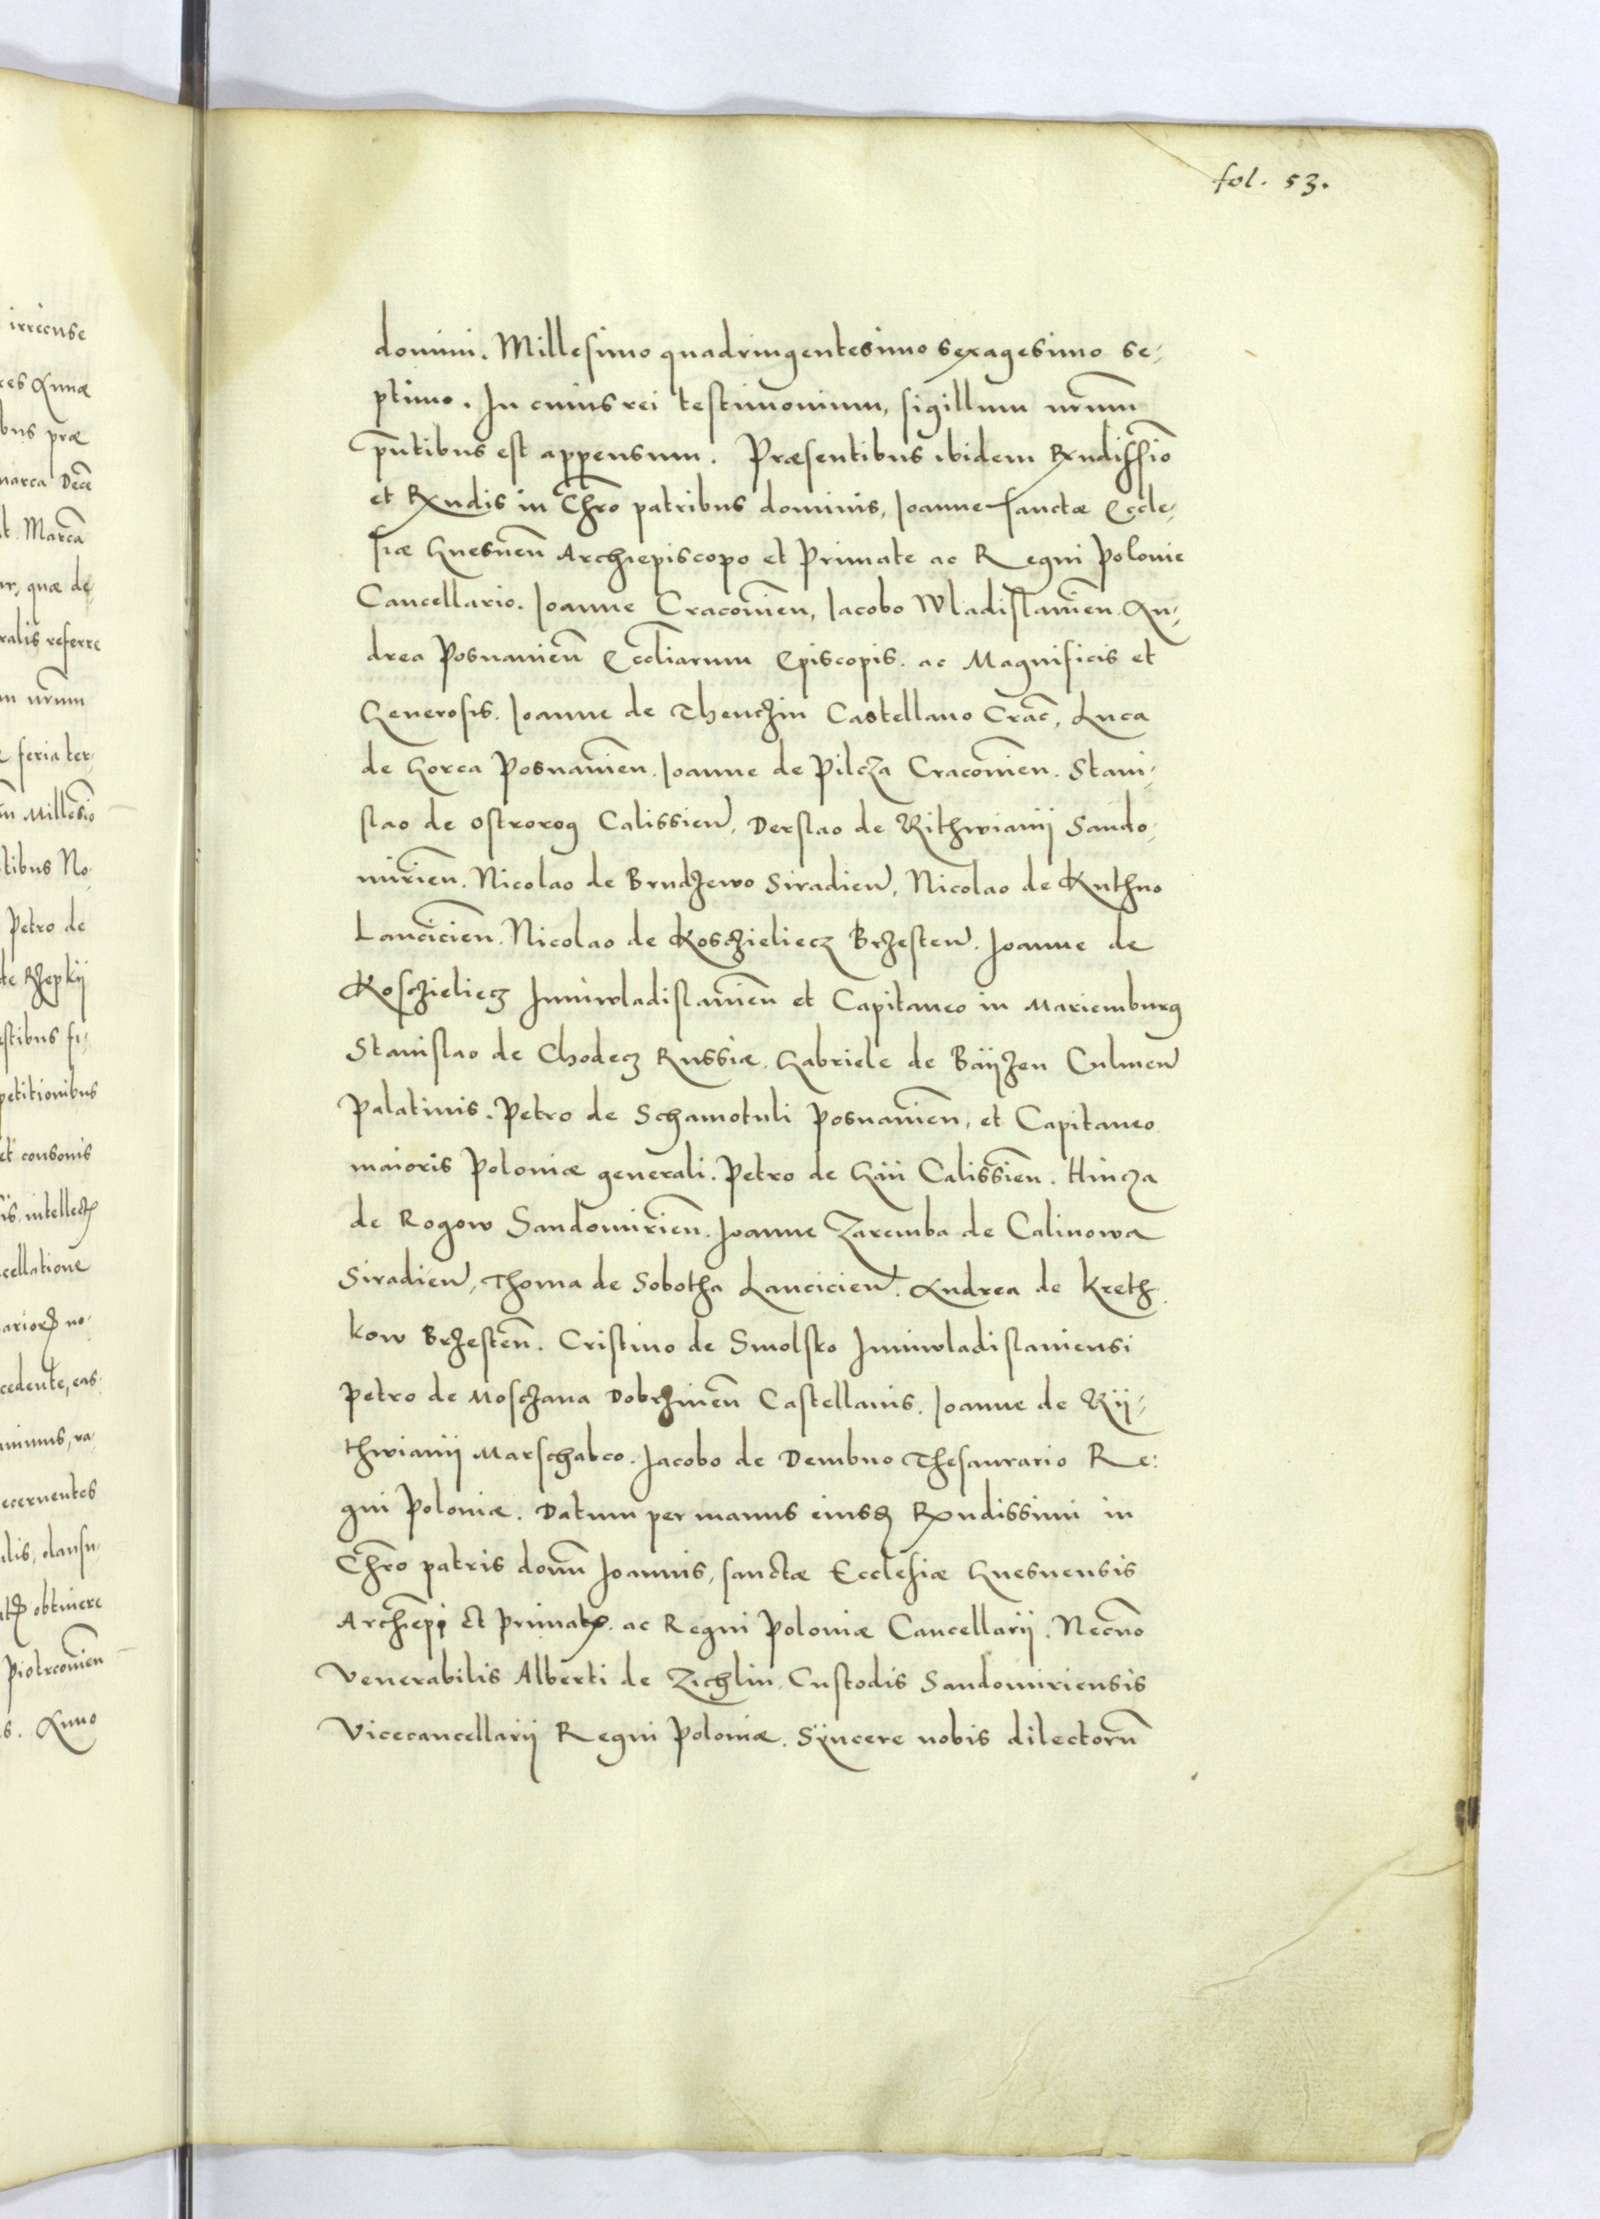 fol. 53.
domini. Millesimo quadringentesimo sexagesimo se-
ptimo. In cuius rei testimonium, sigillum nr̃um
p̃ntibus est appensum. Præsentibus ibidem Rx̃ndissio
et Rx̃ndis in Chr̃o patribus dominis, Joanne sanctæ Eccle-
siæ Gnesnen̄ Archiepiscopo et Primate ac Regni Polonie
Cancellario. Joanne Cracovien̄, Jacobo Wladislavien̄ An-
drea Posnanien̄ Eccliarum Episcopis. ac Magnificis et
Generosis. Joanne de Thenczin Castellano Crac̄, Luca
de Gorca Posnanien̄. Joanne de Pilcza Cracovien̄. Stani-
slao de Ostrorog Calissien̄, Derslao de Rithwianij Sando-
mirien̄. Nicolao de Brudzewo Siradien̄, Nicolao de Kuthno
Lancicien̄. Nicolao de Kosczieliecz Brzesten̄. Joanne de
Kosczieliecz Juniwladislavien̄ et Capitaneo in Mariemburg
Stanislao de Chodecz Russiæ. Gabriele de Baÿzen Culmen̄
Palatinis. Petro de Schamotuli Posnanien̄, et Capitaneo
maioris Poloniæ generali. Petro de Gaii Calissien̄. Hincza
de Rogow Sandomirien̄. Joanne Zaremba de Calinowa
Siradien̄, Thoma de Sobotha Lancicien̄. Andrea de Kreth
kow Brzesten̄. Cristino de Smolsko Juniwladislaviensi
Petro de Mosczana Dobrzinen̄ Castellanis. Joanne de Rij-
thwianij Marschalco. Jacobo de Dembno Thesaurario Re:
gni Poloniæ. Datum per manus eiusdꝫ Rx̃ndissimi in
Chr̃o patris domn̄ Joannis, sanctæ Ecclesiæ Gnesnensis
Archiep̄i et Primatꝭ. ac Regni Poloniæ Cancellarij. Necno̅
Venerabilis Alberti de Zichlin. Custodis Sandomiriensis
Vicecancellarij Regni Poloniæ. Sÿncere nobis dilectoru̅
irrecuse
res Annæ
bus præ
marca Dece̅
t. Marca̅
ar, quæ de
ralis referre
m nr̃um
feria ter-
m̄ Millesio̅
tibus No-
Petro de
de Rzepkij
stibus fi-
petitionibus
et consonis
is. intellectꝭ
cellatione
arioꝝ no-
cedente, eas-
uimus, ra-
ecernentes
lis, clausu-
obtinere
Piotrcovien̄
s. Anno